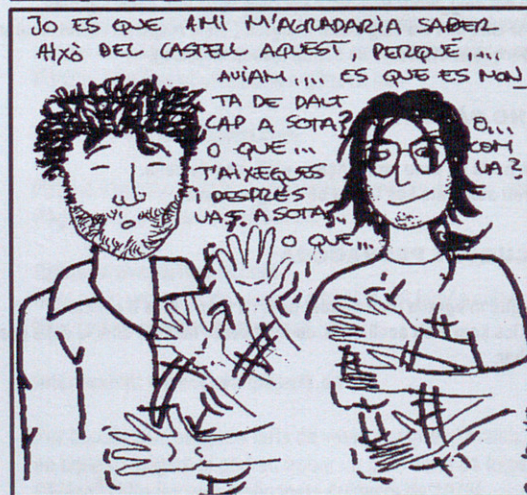 JO ES QUE AMI M'AGRADARIA SABER
AIXÒ DEL CASTELL AQUEST, PERQUÈ....
AVIAM.... ES QUE ES MON
TA DE DALT
CAP A SOTA?
O QUE...
T'AIXEQUES
i DESPRÉS
VAS A SOTA..
O QUE...
O...
COM
VA?